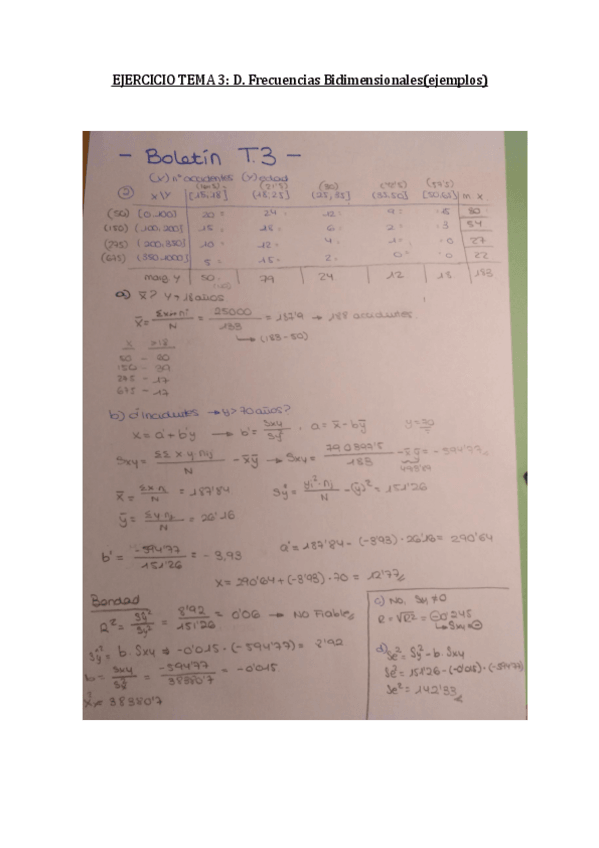 EJERCICIO TEMA 3: D. Frecuencias Bidimensionales(ejemplos)
- Boletín T.3 -
(x) nº accidentes (y) edad
x\y [15,18] (18,25] (25,35] (50,65] m. x.
(50) [0,100] 20 24 12 9 15 80
(150) (100,200] 15 18 6 2 3 54
(275) (200,350] 10 12 4 1 0 27
(675) (350,1000] 5 15 2 0 0 22
marg. y 50 79 24 12 18 183
a) x̄? y > 18 años
= 25000
x̄ = Σx·ni / N → 188 accidentes
(183-50)
50 -
275 - 17
675 - 17
b) → y > 70 años?
x = a' + b'y → b' = Sxy / Sy² a = x̄ - bȳ
Sxy = ΣΣ x y nij / N - x̄ȳ → Sxy = 183 - x̄ȳ = -594'77
x̄ = Σx n / N = 187'84 Sy² = yi² · nj / N - (ȳ)² = 151'26
ȳ = Σy·nj / N = 26'16
b' = -594'77 / 151'26 = -3,93 a' = 187'84 - (-3'93) · 26'16 = 290'64
x = 290'64 + (-3'93) · 70 =
Bondad
R² = 8'92 / 151'26 = 0'06 → No Fiable
= b · Sxy ⇒ -0'015 · (-594'77) = 8'92
b = Sxy = -594'77 / 38380'7 = -0'015
= 38380'7
c) No, Sxy ≠ 0
R = √R² = -0'245
→ Sxy
d) Se² = Sy² - b · Sxy
Se² = 151'26 - (-0'015) · (-594'77)
Se² = 142'33